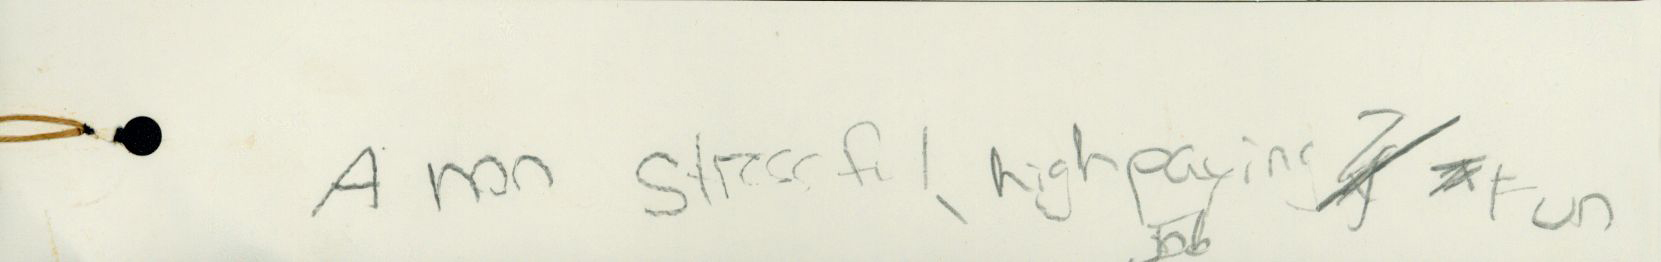 A non stressful, high paying, fun
Job